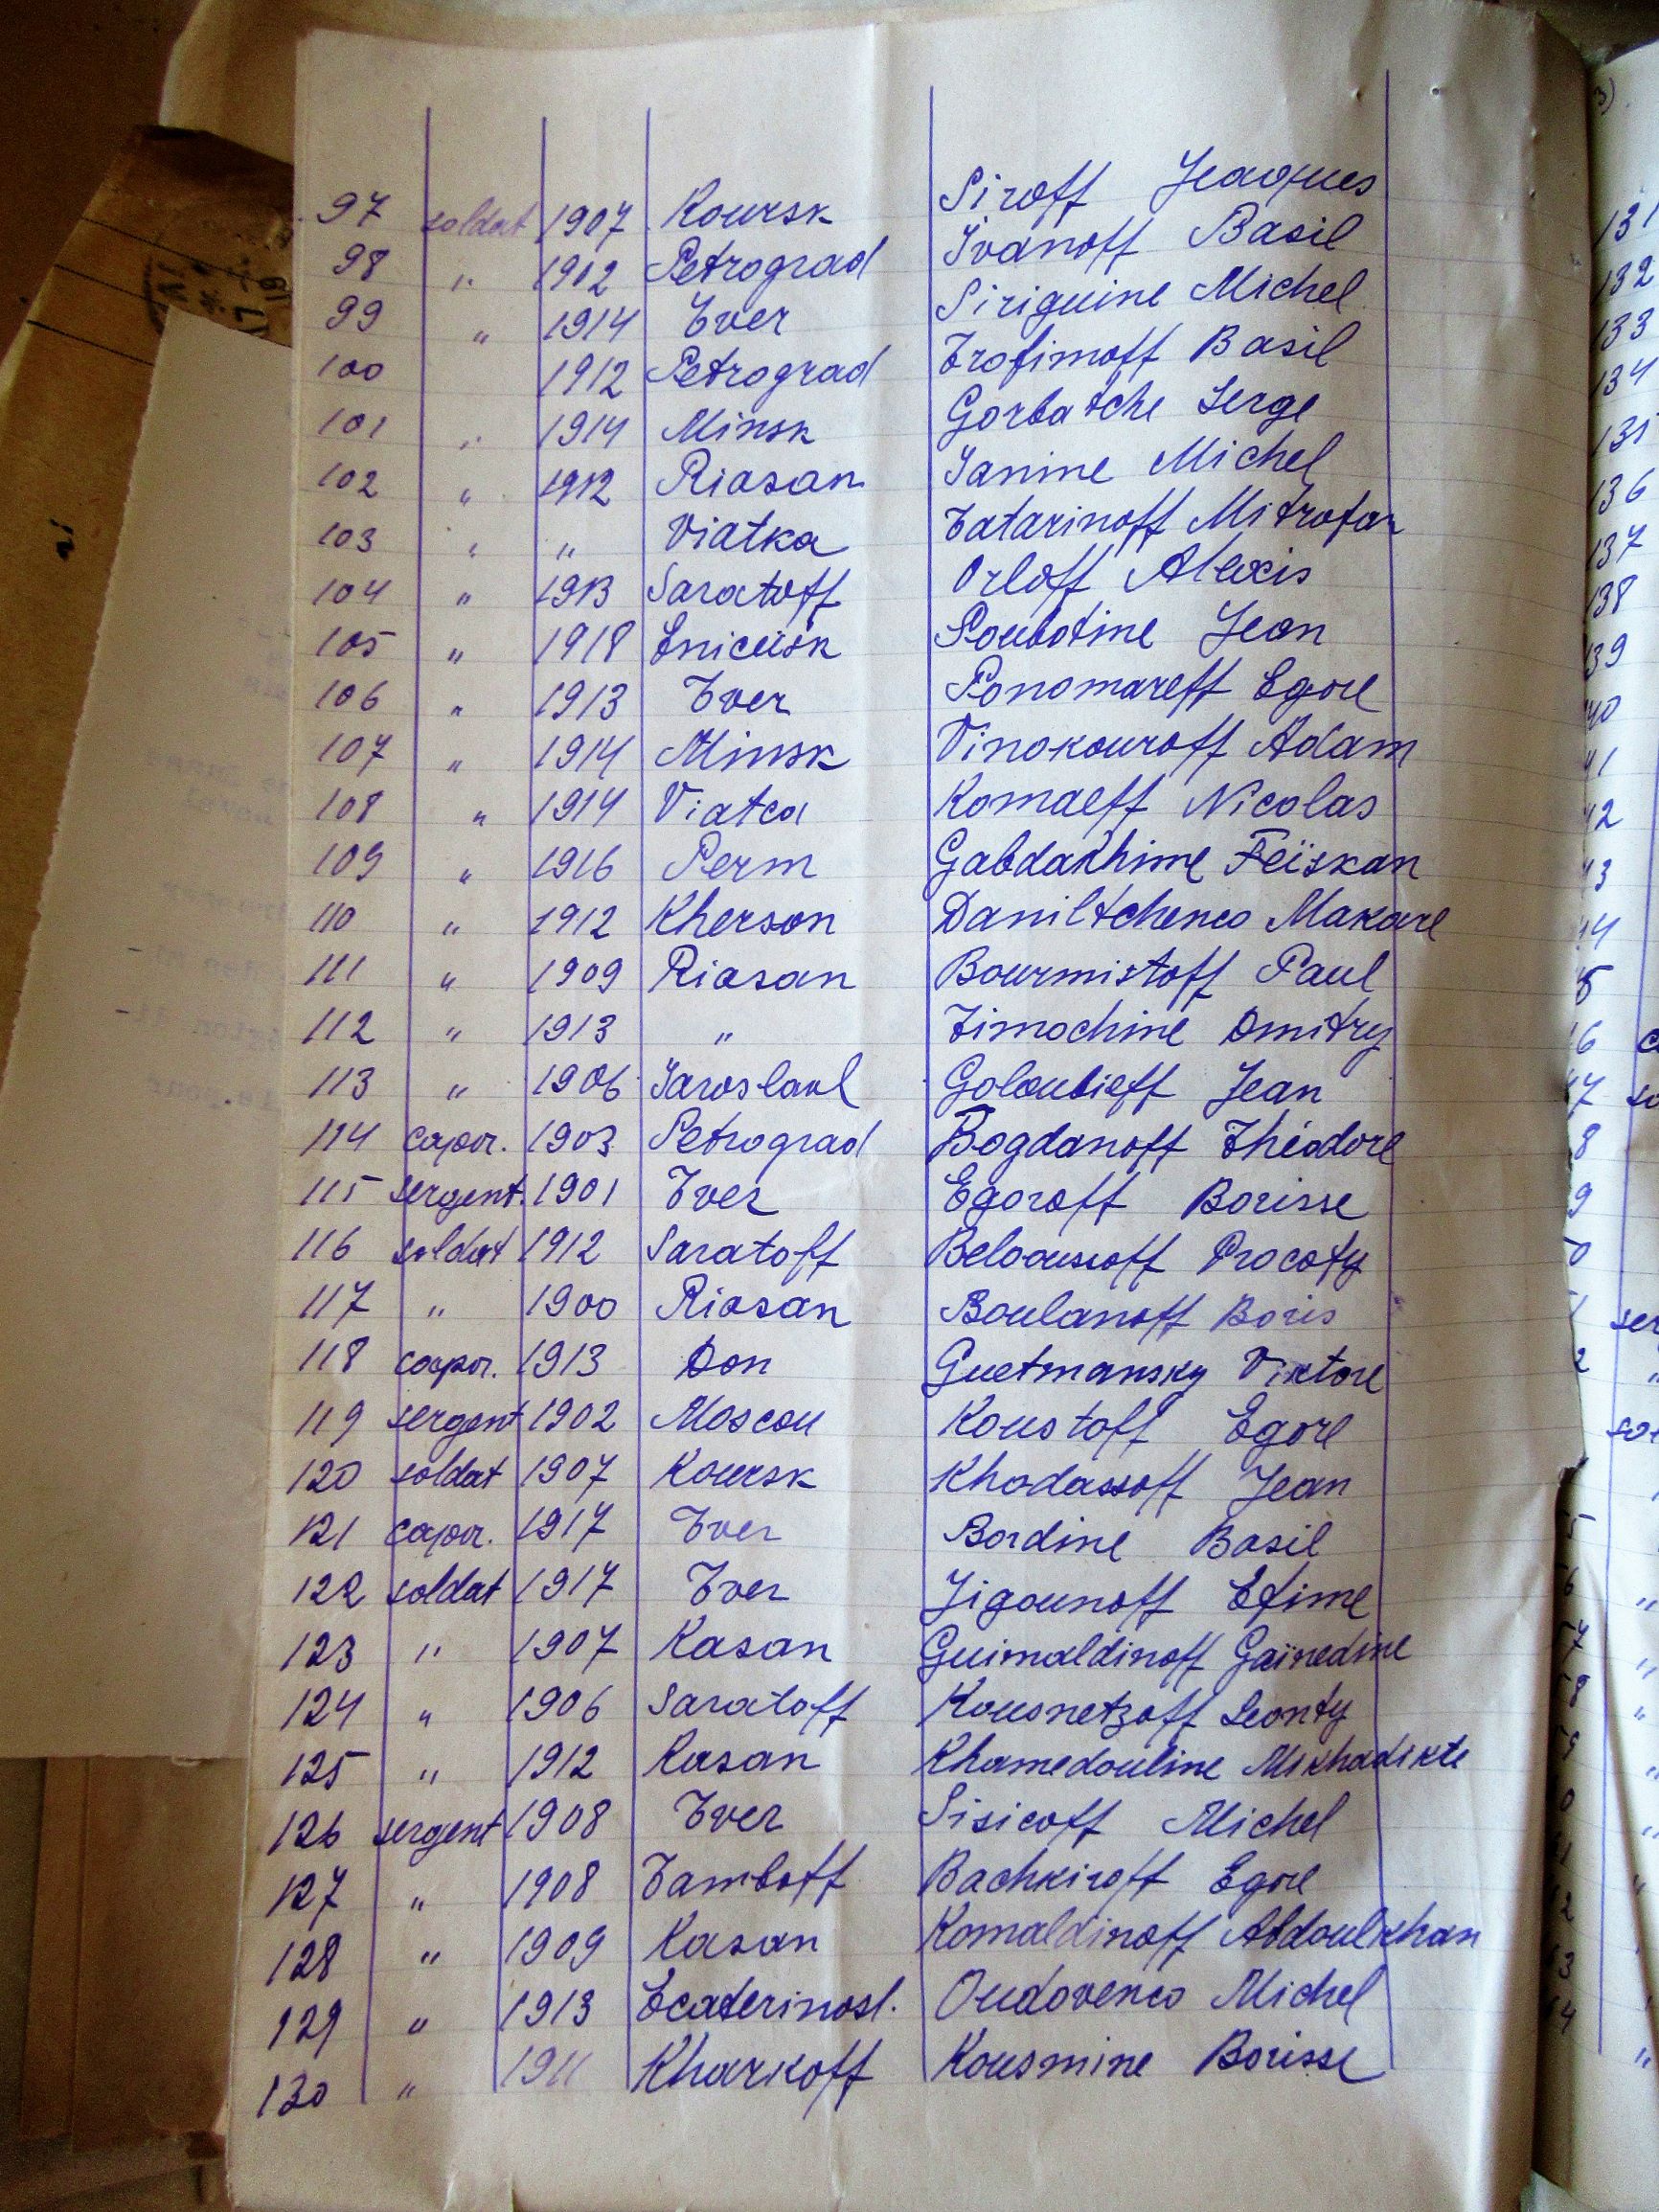 97 soldat 1907 Koursk Siroff Jeaques
98 " 1902 Petrograd Ivanoff Basil
99 " 1914 Tver Siriguine Michel
100 1912 Petrograd Trofimoff Basil
101 " 1914 Minsk Gorbatche Serge
102 " 1912 Riasan Ianine Michel
103 " " Viatka Tatarinoff Mitrofan
104 " 1913 Saratoff Orloff Alexis
105 " 1918 Eniceisk Poubotine Jean
106 " 1913 Tver Ponomareff Egore
107 " 1914 Minsk Vinokouroff Adam
108 " 1914 Viatca Komaeff Nicolas
109 " 1916 Perm Gabdakhime Feïskan
110 " 1912 Kherson Daniltchenco Makare
111 " 1909 Riasan Bourmistoff Paul
112 " 1913 " Timochine Dmitry
113 " 1906 Jaroslavl Goloubieff Jean
114 capor. 1903 Petrograd Bogdanoff Théodore
115 sergent. 1901 Tver Egoroff Borisse
116 soldat 1912 Saratoff Belooussoff Procofy
117 " 1900 Riasan Boulanoff Boris
118 capor. 1913 Don Guetmansky Viktore
119 sergent 1902 Moscou Koustoff Egore
120 soldat 1907 Koursk Khodassoff Jean
121 capor. 1917 Tver Bordine Basil
122 soldat 1917 Tver Jigounoff Efime
123 " 1907 Kasan Guimaldinoff Gaïnedine
124 " 1906 Saratoff Kousnetzoff Leonty
125 " 1912 Kasan Khamedouline Mikhadikte
126 sergent 1908 Tver Sisicoff Michel
127 " 1908 Tamboff Bachkiroff Egore
128 " 1909 Kasan Komaldinoff Abdoulkhan
129 " 1913 Ecaterinosl. Oudovenco Michel
130 " 1911 Kharkoff Kousmine Borisse
3)
131
132
133
134
135
136
137
138